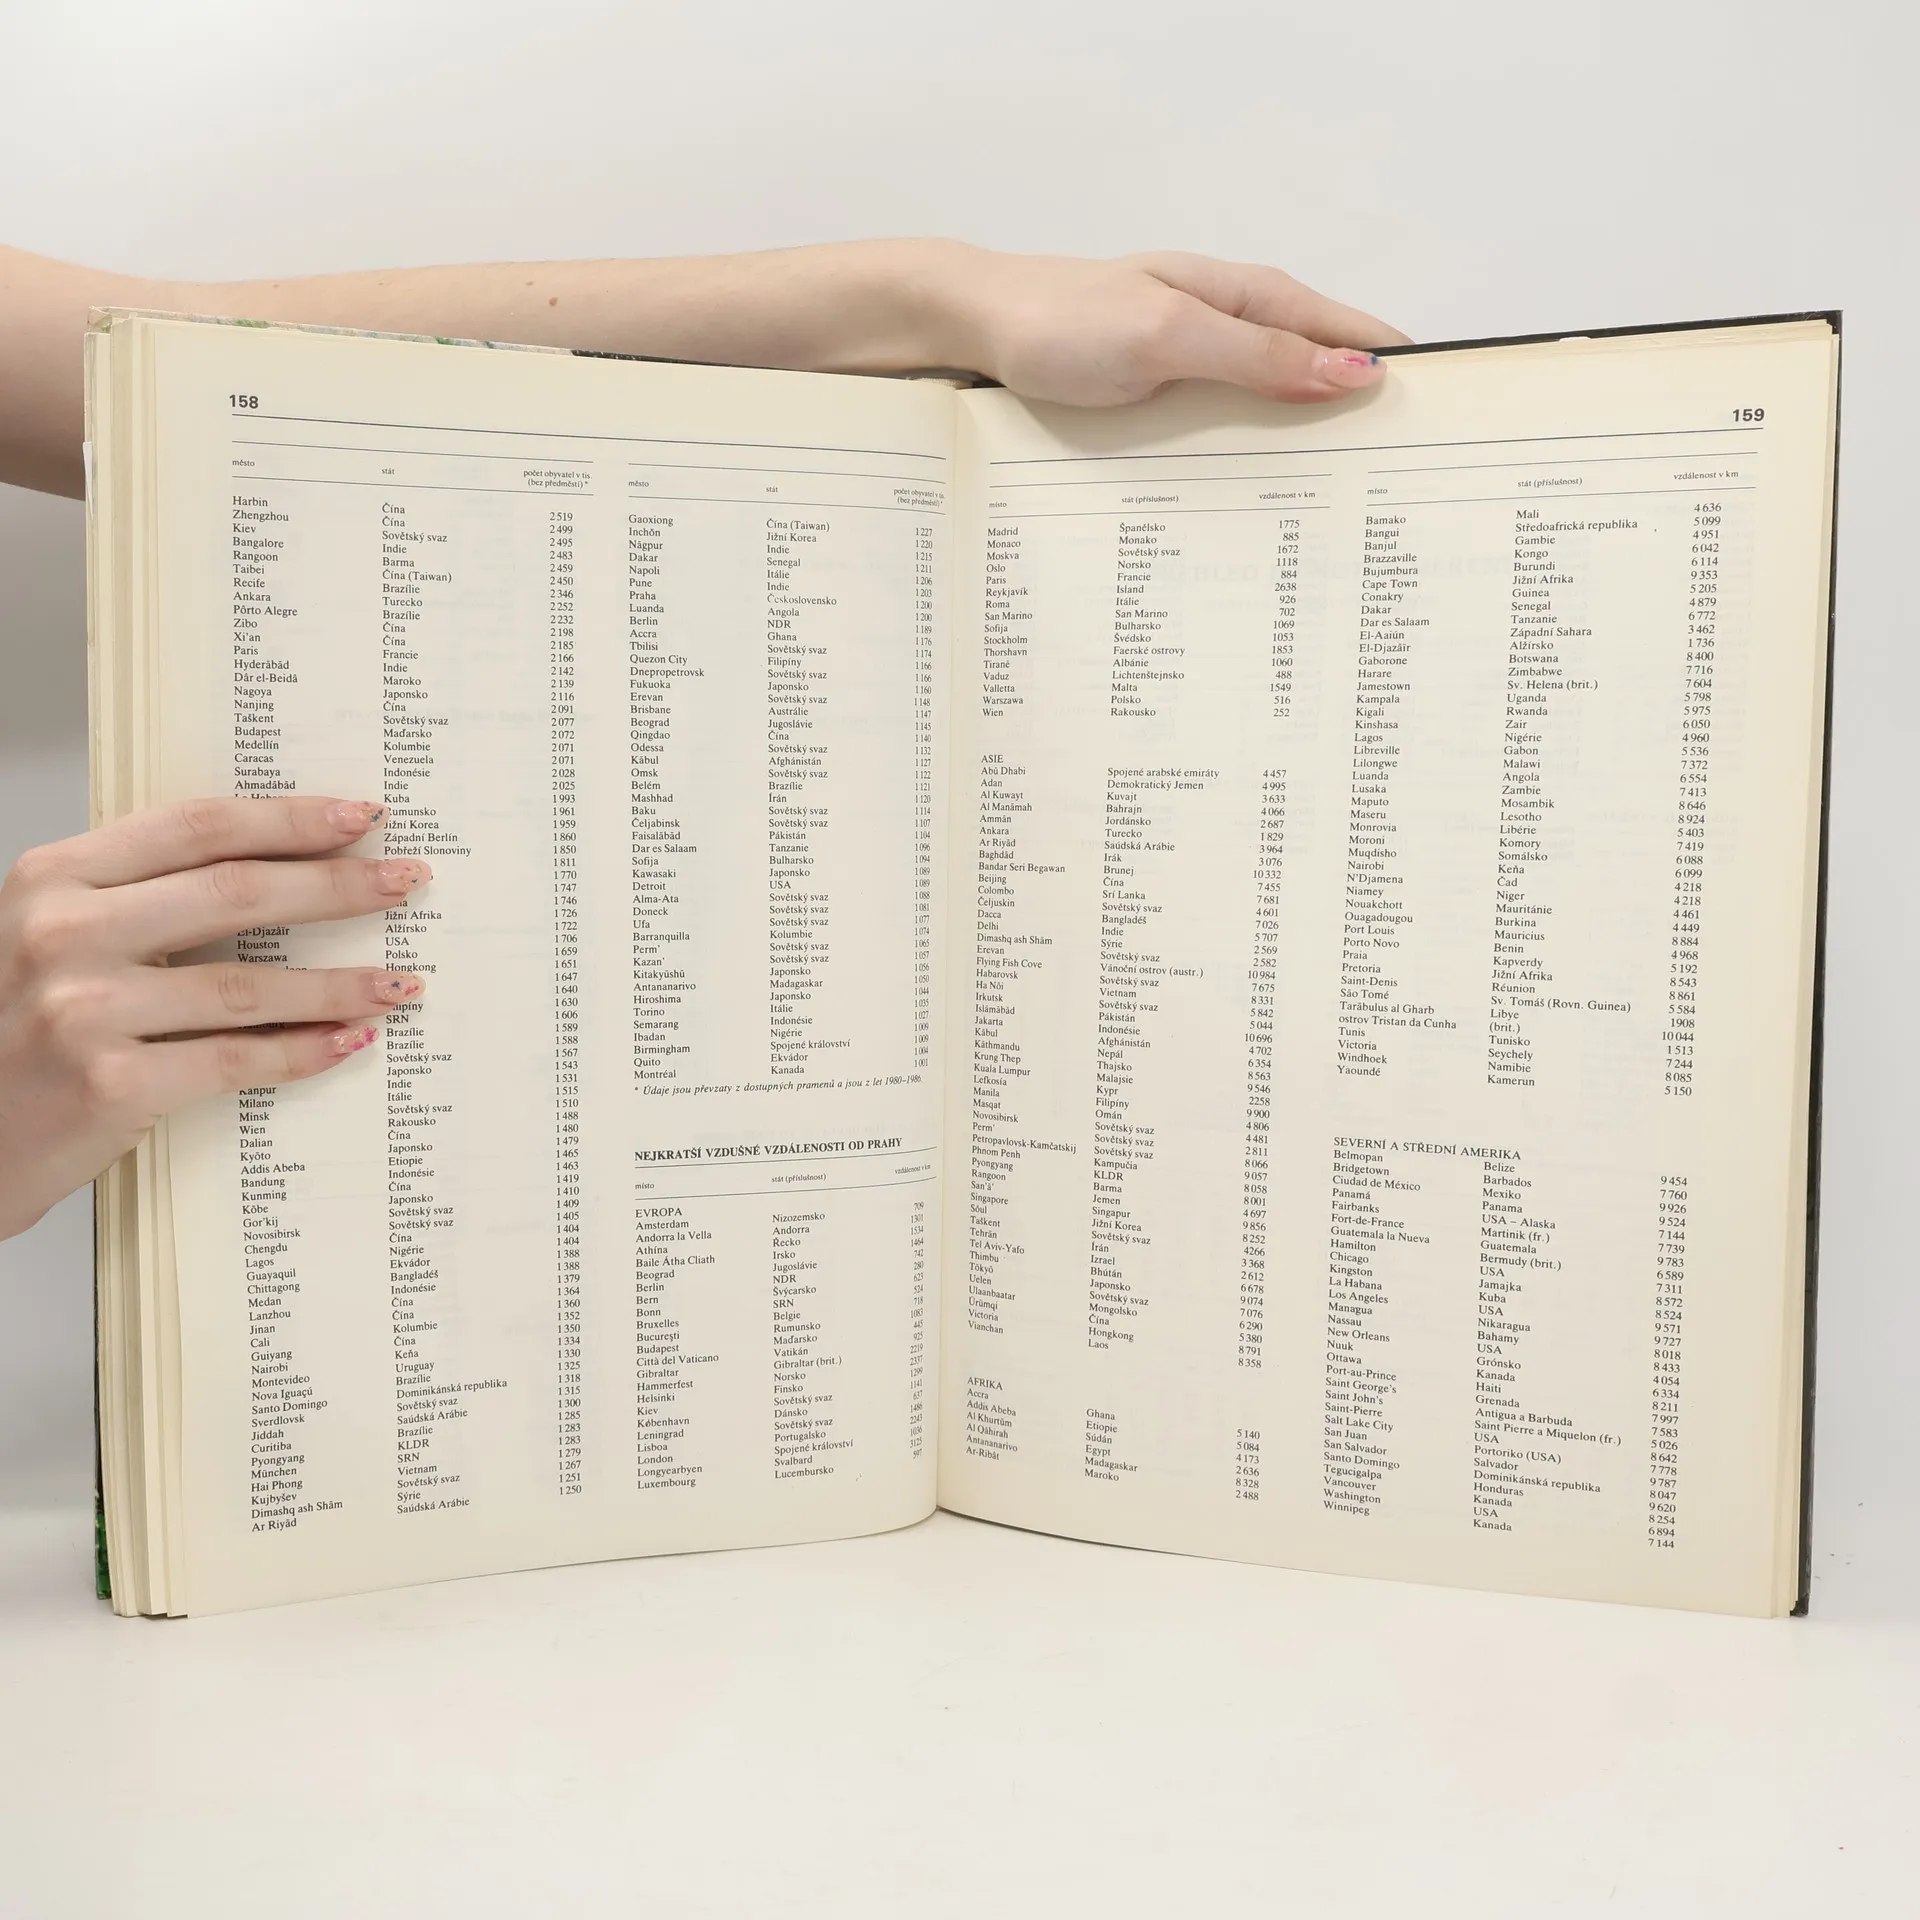 158
město stát počet obyvatel v tis. (bez předměstí) *
Harbin Čína 2 519
Zhengzhou Čína 2 499
Kiev Sovětský svaz 2 495
Bangalore Indie 2 483
Rangoon Barma 2 459
Taibei Čína (Taiwan) 2 450
Recife Brazílie 2 346
Ankara Turecko 2 252
Pôrto Alegre Brazílie 2 232
Zibo Čína 2 198
Xi'an Čína 2 185
Paris Francie 2 166
Hyderābād Indie 2 142
Dâr el-Beidâ Maroko 2 139
Nagoya Japonsko 2 116
Nanjing Čína 2 091
Taškent Sovětský svaz 2 077
Budapest Maďarsko 2 072
Medellín Kolumbie 2 071
Caracas Venezuela 2 071
Surabaya Indonésie 2 028
Ahmadābād Indie 2 025
Kuba 1 993
Rumunsko 1 961
Jižní Korea 1 959
Západní Berlín 1 860
Pobřeží Slonoviny 1 850
1 811
1 770
1 747
1 746
Jižní Afrika 1 726
El-Djazâir Alžírsko 1 722
Houston USA 1 706
Warszawa Polsko 1 659
Hongkong 1 651
1 647
1 640
1 630
SRN 1 606
Brazílie 1 589
Brazílie 1 588
Sovětský svaz 1 567
Japonsko 1 543
Kanpur Indie 1 531
Milano Itálie 1 515
Minsk Sovětský svaz 1 510
Wien Rakousko 1 488
Dalian Čína 1 480
Kyōto Japonsko 1 479
Addis Abeba Etiopie 1 465
Bandung Indonésie 1 463
Kunming Čína 1 419
Kōbe Japonsko 1 410
Gor'kij Sovětský svaz 1 409
Novosibirsk Sovětský svaz 1 405
Chengdu Čína 1 404
Lagos Nigérie 1 404
Guayaquil Ekvádor 1 388
Chittagong Bangladéš 1 388
Medan Indonésie 1 379
Lanzhou Čína 1 364
Jinan Čína 1 360
Cali Kolumbie 1 352
Guiyang Čína 1 350
Nairobi Keňa 1 334
Montevideo Uruguay 1 330
Nova Iguaçú Brazílie 1 325
Santo Domingo Dominikánská republika 1 318
Sverdlovsk Sovětský svaz 1 315
Jiddah Saúdská Arábie 1 300
Curitiba Brazílie 1 285
Pyongyang KLDR 1 283
München SRN 1 283
Hai Phong Vietnam 1 279
Kujbyšev Sovětský svaz 1 267
Dimashq ash Shām Sýrie 1 251
Ar Riyād Saúdská Arábie 1 250
město stát počet obyvatel v tis. (bez předměstí) *
Gaoxiong Čína (Taiwan) 1 227
Inchŏn Jižní Korea 1 220
Nāgpur Indie 1 215
Dakar Senegal 1 211
Napoli Itálie 1 206
Pune Indie 1 203
Praha Československo 1 200
Luanda Angola 1 200
Berlin NDR 1 189
Accra Ghana 1 176
Tbilisi Sovětský svaz 1 174
Quezon City Filipíny 1 166
Dnepropetrovsk Sovětský svaz 1 166
Fukuoka Japonsko 1 160
Erevan Sovětský svaz 1 148
Brisbane Austrálie 1 147
Beograd Jugoslávie 1 145
Qingdao Čína 1 140
Odessa Sovětský svaz 1 132
Kābul Afghánistán 1 127
Omsk Sovětský svaz 1 122
Belém Brazílie 1 121
Mashhad Írán 1 120
Baku Sovětský svaz 1 114
Čeljabinsk Sovětský svaz 1 107
Faisalābād Pákistán 1 104
Dar es Salaam Tanzanie 1 096
Sofija Bulharsko 1 094
Kawasaki Japonsko 1 089
Detroit USA 1 089
Alma-Ata Sovětský svaz 1 088
Doneck Sovětský svaz 1 081
Ufa Sovětský svaz 1 077
Barranquilla Kolumbie 1 074
Perm' Sovětský svaz 1 065
Kazan' Sovětský svaz 1 057
Kitakyūshū Japonsko 1 056
Antananarivo Madagaskar 1 050
Hiroshima Japonsko 1 044
Torino Itálie 1 035
Semarang Indonésie 1 027
Ibadan Nigérie 1 009
Birmingham Spojené království 1 009
Quito Ekvádor 1 004
Montréal Kanada 1 001
* Údaje jsou převzaty z dostupných pramenů a jsou z let 1980–1986.
NEJKRATŠÍ VZDUŠNÉ VZDÁLENOSTI OD PRAHY
místo stát (příslušnost) vzdálenost v km
EVROPA
Amsterdam Nizozemsko 709
Andorra la Vella Andorra 1301
Athína Řecko 1534
Baile Átha Cliath Irsko 1464
Beograd Jugoslávie 742
Berlin NDR 280
Bern Švýcarsko 623
Bonn SRN 524
Bruxelles Belgie 718
Bucureşti Rumunsko 1083
Budapest Maďarsko 445
Città del Vaticano Vatikán 925
Gibraltar Gibraltar (brit.) 2219
Hammerfest Norsko 2337
Helsinki Finsko 1299
Kiev Sovětský svaz 1141
København Dánsko 637
Leningrad Sovětský svaz 1486
Lisboa Portugalsko 2243
London Spojené království 1036
Longyearbyen Svalbard 3125
Luxembourg Lucembursko 597
159
místo stát (příslušnost) vzdálenost v km
Madrid Španělsko 1775
Monaco Monako 885
Moskva Sovětský svaz 1672
Oslo Norsko 1118
Paris Francie 884
Reykjavík Island 2638
Roma Itálie 926
San Marino San Marino 702
Sofija Bulharsko 1069
Stockholm Švédsko 1053
Thorshavn Faerské ostrovy 1853
Tiranë Albánie 1060
Vaduz Lichtenštejnsko 488
Valletta Malta 1549
Warszawa Polsko 516
Wien Rakousko 252
ASIE
Abū Dhabi Spojené arabské emiráty 4 457
Adan Demokratický Jemen 4 995
Al Kuwayt Kuvajt 3 633
Al Manāmah Bahrajn 4 066
Ammān Jordánsko 2 687
Ankara Turecko 1 829
Ar Riyād Saúdská Arábie 3 964
Baghdād Irák 3 076
Bandar Seri Begawan Brunej 10 332
Beijing Čína 7 455
Colombo Srí Lanka 7 681
Čeljuskin Sovětský svaz 4 601
Dacca Bangladéš 7 026
Delhi Indie 5 707
Dimashq ash Shām Sýrie 2 569
Erevan Sovětský svaz 2 582
Flying Fish Cove Vánoční ostrov (austr.) 10 984
Habarovsk Sovětský svaz 7 675
Ha Nôi Vietnam 8 331
Irkutsk Sovětský svaz 5 842
Islāmābād Pákistán 5 044
Jakarta Indonésie 10 696
Kābul Afghánistán 4 702
Kāthmandu Nepál 6 354
Krung Thep Thajsko 8 563
Kuala Lumpur Malajsie 9 546
Lefkosía Kypr 2258
Manila Filipíny 9 900
Masqat Omán 4 806
Novosibirsk Sovětský svaz 4 481
Perm' Sovětský svaz 2 811
Petropavlovsk-Kamčatskij Sovětský svaz 8 066
Phnom Penh Kampučia 9 057
Pyongyang KLDR 8 058
Rangoon Barma 8 001
San'ā' Jemen 4 697
Singapore Singapur 9 856
Sŏul Jižní Korea 8 252
Taškent Sovětský svaz 4266
Tehrān Írán 3 368
Tel Aviv-Yafo Izrael 2 612
Thimbu Bhútán 6 678
Tōkyō Japonsko 9 074
Uelen Sovětský svaz 7 076
Ulaanbaatar Mongolsko 6 290
Ürümqi Čína 5 380
Victoria Hongkong 8 791
Vianchan Laos 8 358
AFRIKA
Accra Ghana 5 140
Addis Abeba Etiopie 5 084
Al Khurtūm Súdán 4 173
Al Qāhirah Egypt 2 636
Antananarivo Madagaskar 8 328
Ar-Ribât Maroko 2 488
místo stát (příslušnost) vzdálenost v km
Bamako Mali 4 636
Bangui Středoafrická republika 5 099
Banjul Gambie 4 951
Brazzaville Kongo 6 042
Bujumbura Burundi 6 114
Cape Town Jižní Afrika 9 353
Conakry Guinea 5 205
Dakar Senegal 4 879
Dar es Salaam Tanzanie 6 772
El-Aaiún Západní Sahara 3 462
El-Djazâir Alžírsko 1 736
Gaborone Botswana 8 400
Harare Zimbabwe 7 716
Jamestown Sv. Helena (brit.) 7 604
Kampala Uganda 5 798
Kigali Rwanda 5 975
Kinshasa Zair 6 050
Lagos Nigérie 4 960
Libreville Gabon 5 536
Lilongwe Malawi 7 372
Luanda Angola 6 554
Lusaka Zambie 7 413
Maputo Mosambik 8 646
Maseru Lesotho 8 924
Monrovia Libérie 5 403
Moroni Komory 7 419
Muqdisho Somálsko 6 088
Nairobi Keňa 6 099
N'Djamena Čad 4 218
Niamey Niger 4 218
Nouakchott Mauritánie 4 461
Ouagadougou Burkina 4 449
Port Louis Mauricius 8 884
Porto Novo Benin 4 968
Praia Kapverdy 5 192
Pretoria Jižní Afrika 8 543
Saint-Denis Réunion 8 861
São Tomé Sv. Tomáš (Rovn. Guinea) 5 584
Tarābulus al Gharb Libye 1908
ostrov Tristan da Cunha (brit.) 10 044
Tunis Tunisko 1 513
Victoria Seychely 7 244
Windhoek Namibie 8 085
Yaoundé Kamerun 5 150
SEVERNÍ A STŘEDNÍ AMERIKA
Belmopan Belize 9 454
Bridgetown Barbados 7 760
Ciudad de México Mexiko 9 926
Panamá Panama 9 524
Fairbanks USA – Alaska 7 144
Fort-de-France Martinik (fr.) 7 739
Guatemala la Nueva Guatemala 9 783
Hamilton Bermudy (brit.) 6 589
Chicago USA 7 311
Kingston Jamajka 8 572
La Habana Kuba 8 524
Los Angeles USA 9 571
Managua Nikaragua 9 727
Nassau Bahamy 8 018
New Orleans USA 8 433
Nuuk Grónsko 4 054
Ottawa Kanada 6 334
Port-au-Prince Haiti 8 211
Saint George's Grenada 7 997
Saint John's Antigua a Barbuda 7 583
Saint-Pierre Saint Pierre a Miquelon (fr.) 5 026
Salt Lake City USA 8 642
San Juan Portoriko (USA) 7 778
San Salvador Salvador 9 787
Santo Domingo Dominikánská republika 8 047
Tegucigalpa Honduras 9 620
Vancouver Kanada 8 254
Washington USA 6 894
Winnipeg Kanada 7 144